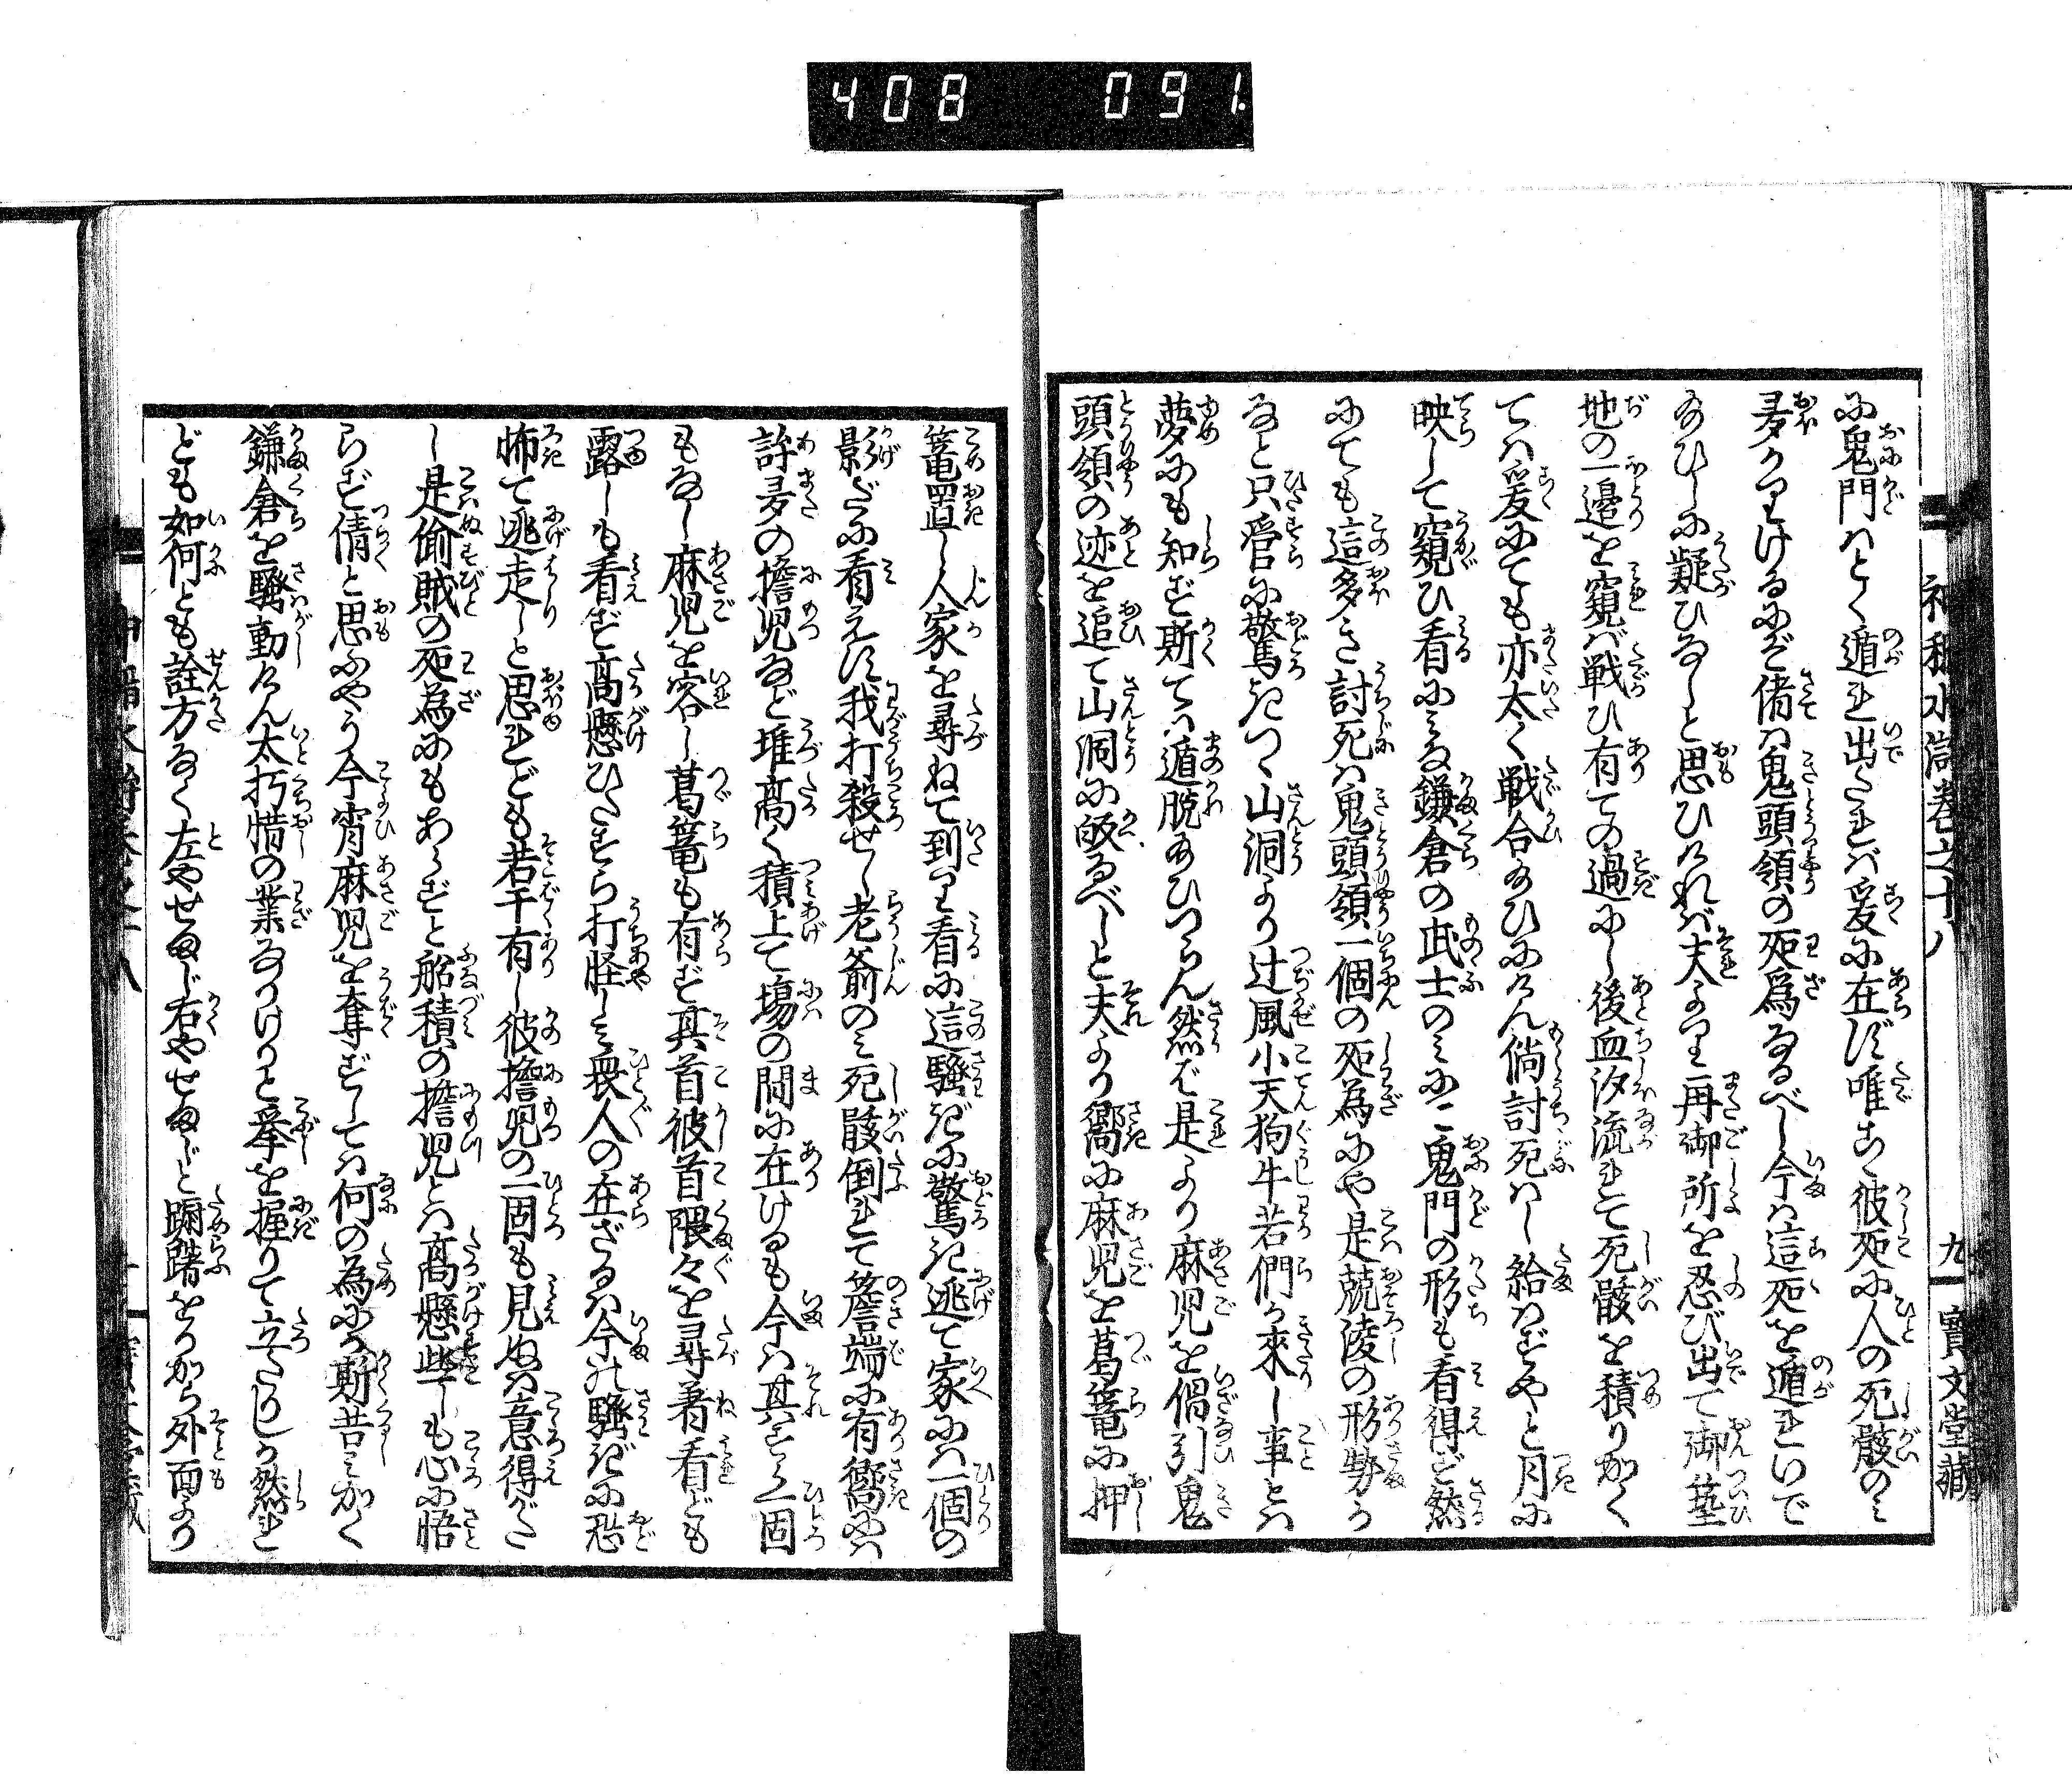 408 091
神稲水滸巻之十八 九 寳文堂藏
に鬼門はとく遁れ出たれバ爰に在ず唯こゝ彼処に人の死骸のミ
多かりけるにぞ偖ハ鬼頭領の所爲なるべし今ハ這処を遁れいで
給ひしに疑ひなしと思ひけれバ夫より再御所を忍び出て御墓
地の一邉を窺バ戦ひ有ての過にし後血汐流れて死骸を積りかく
てハ爰にても亦太く戦合給ひにけん倘討死ハし給ハずやと月に
映して窺ひ看るにミな鎌倉の武士のミにて鬼門の形も看得ど然
にても這多き討死ハ鬼頭領一個の所為にや是兢淩の形勢か
なと只管に驚きつゝ山洞より辻風小天狗牛若們が來りし事とハ
夢にも知ず斯てハ遁脱給ひつらん然バ是より麻児を倡引鬼
頭領の迹を追て山洞に皈るべしと夫より嚮に麻児を葛篭に押
篭置し人家を尋ねて到り看るに這騒ぎに驚き逃て家にハ一個の
影だに看えず我打殺せし老爺のミ死骸倒れて簷端に有嚮にハ
許多の擔児など堆高く積上て塲の間に在けるも今ハ其すら一固
もなし麻児を容し葛篭も有ず其首彼首隈々を尋ね着看ども
露しも看えず高懸ひたすら打怪しミ衆人の在ざるハ今の騒ぎに恐
怖て逃走しと思れども若干有し彼擔児の一固も見ぬハ意得がた
し是偷賊の所為にもあらずと船積の擔児とハ高懸些しも心に悟
らず倩と思ふやう今宵麻児を奪ずしてハ何の為にか斯苦ミかく
鎌倉を騒動しけん太朽惜の業なりけりと拳を握りて立たりしが然れ
ども如何とも詮方なく左やせまじ右やせまじと躊躇をりから外面より